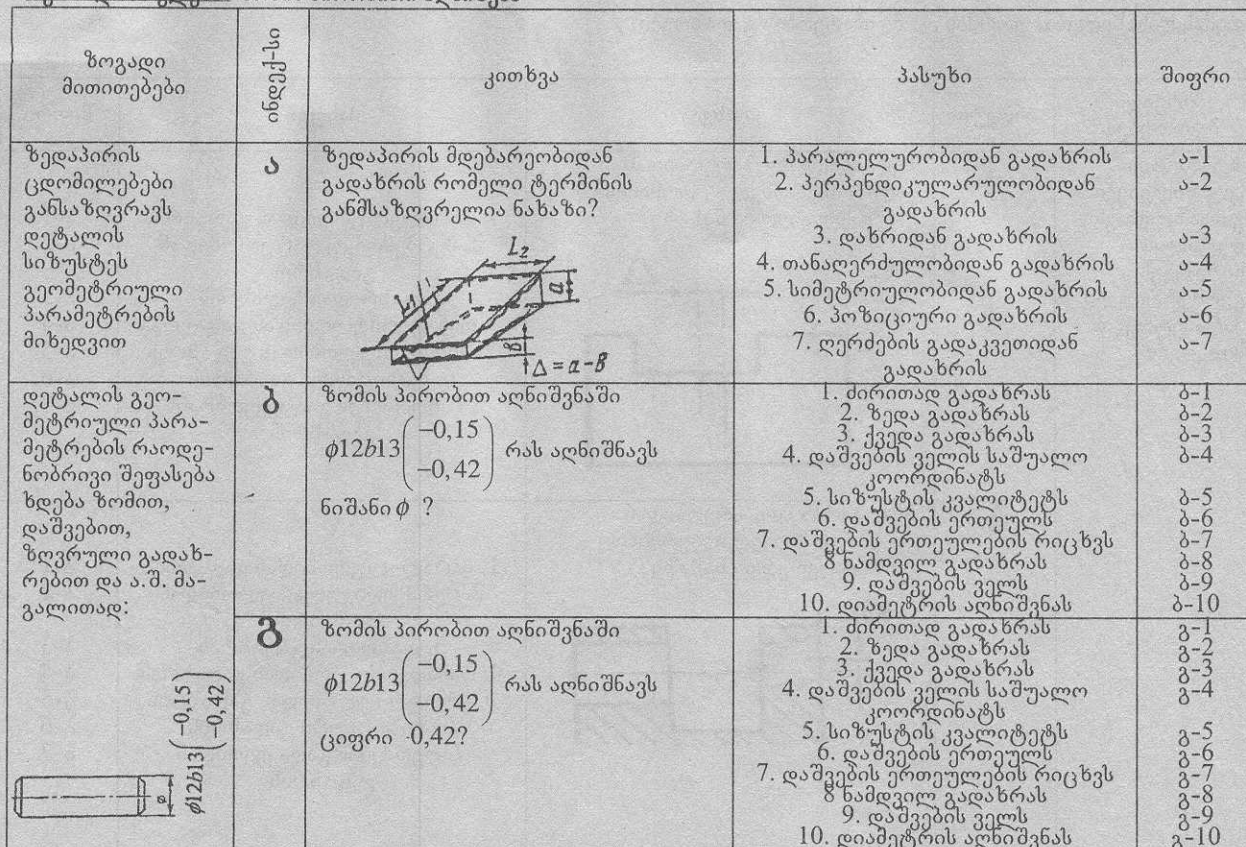 ზოგადი
მითითებები
ინდექ-სი
კითხვა
პასუხი
შიფრი
ზედაპირის
ცდომილებები
განსაზღვრავს
დეტალის
სიზუსტეს
გეომეტრიული
პარამეტრების
მიხედვით
ა
ზედაპირის მდებარეობიდან
გადახრის რომელი ტერმინის
განმსაზღვრელია ნახაზი?
L2
L1
a
B
Δ = a-B
1. პარალელურობიდან გადახრის ა-1
2. პერპენდიკულარულობიდან ა-2
გადახრის
3. დახრიდან გადახრის ა-3
4. თანაღერძულობიდან გადახრის ა-4
5. სიმეტრიულობიდან გადახრის ა-5
6. პოზიციური გადახრის ა-6
7. ღერძების გადაკვეთიდან ა-7
გადახრის
დეტალის გეო-
მეტრიული პარა-
მეტრების რაოდე-
ნობრივი შეფასება
ხდება ზომით,
დაშვებით,
ზღვრული გადახ-
რებით და ა.შ. მა-
გალითად:
ø
ϕ12b13(-0,15
-0,42)
ბ
ზომის პირობით აღნიშვნაში
ϕ12b13(-0,15
-0,42) რას აღნიშნავს
ნიშანი ϕ ?
1. ძირითად გადახრას ბ-1
2. ზედა გადახრას ბ-2
3. ქვედა გადახრას ბ-3
4. დაშვების ველის საშუალო ბ-4
კოორდინატს
5. სიზუსტის კვალიტეტს ბ-5
6. დაშვების ერთეულს ბ-6
7. დაშვების ერთეულების რიცხვს ბ-7
8 ნამდვილ გადახრას ბ-8
9. დაშვების ველს ბ-9
10. დიამეტრის აღნიშვნას ბ-10
გ
ზომის პირობით აღნიშვნაში
ϕ12b13(-0,15
-0,42) რას აღნიშნავს
ციფრი -0,42?
1. ძირითად გადახრას გ-1
2. ზედა გადახრას გ-2
3. ქვედა გადახრას გ-3
4. დაშვების ველის საშუალო გ-4
კოორდინატს
5. სიზუსტის კვალიტეტს გ-5
6. დაშვების ერთეულს გ-6
7. დაშვების ერთეულების რიცხვს გ-7
8 ნამდვილ გადახრას გ-8
9. დაშვების ველს გ-9
10. დიამეტრის აღნიშვნას გ-10